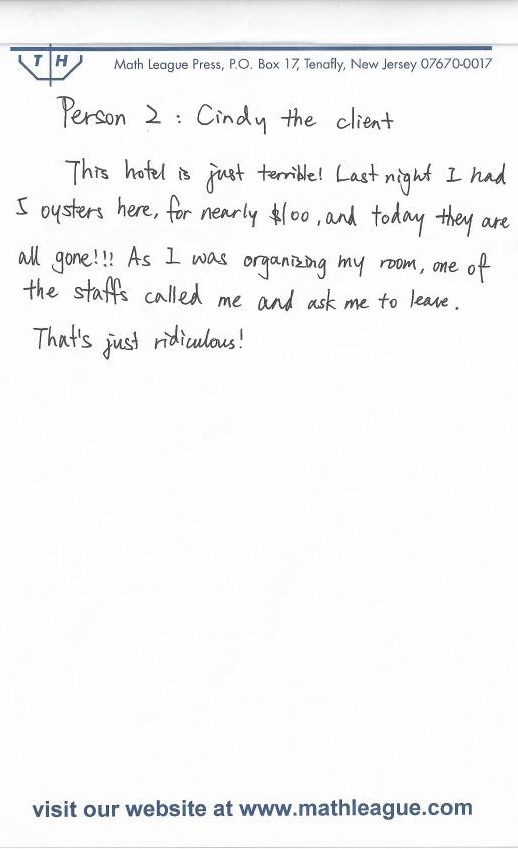 T H
Math League Press, P.O. Box 17, Tenafly, New Jersey 07670-0017
Person 2 : Cindy the client
This hotel is just terrible! Last night I had
5 oysters here, for nearly $100, and today they are
all gone!!! As I was organizing my room, one of
the staffs called me and ask me to leave.
That's just ridiculous!
visit our website at www.mathleague.com